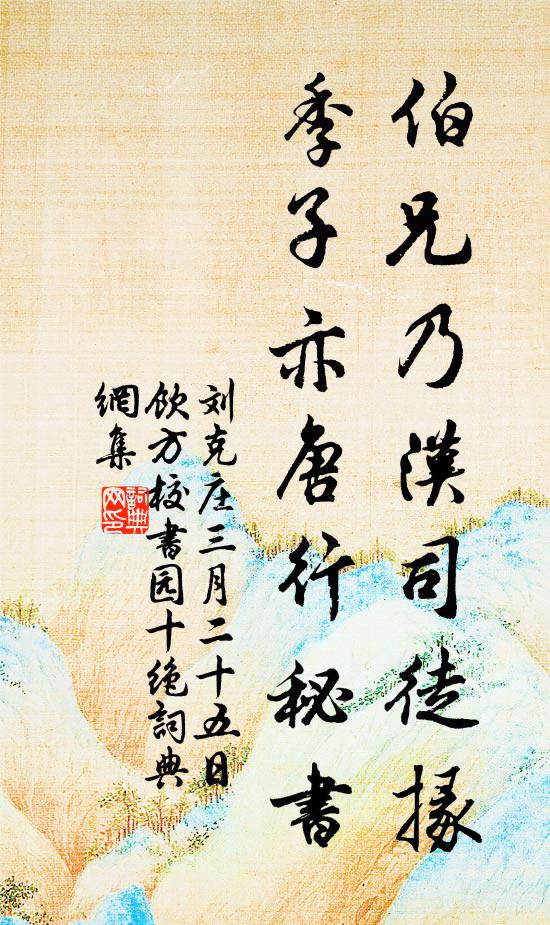 伯兄乃漢司徒掾
季子亦唐行秘書
刘克庄三月二十五日
飲方校書园十绝詞典
網集
詞典
网印